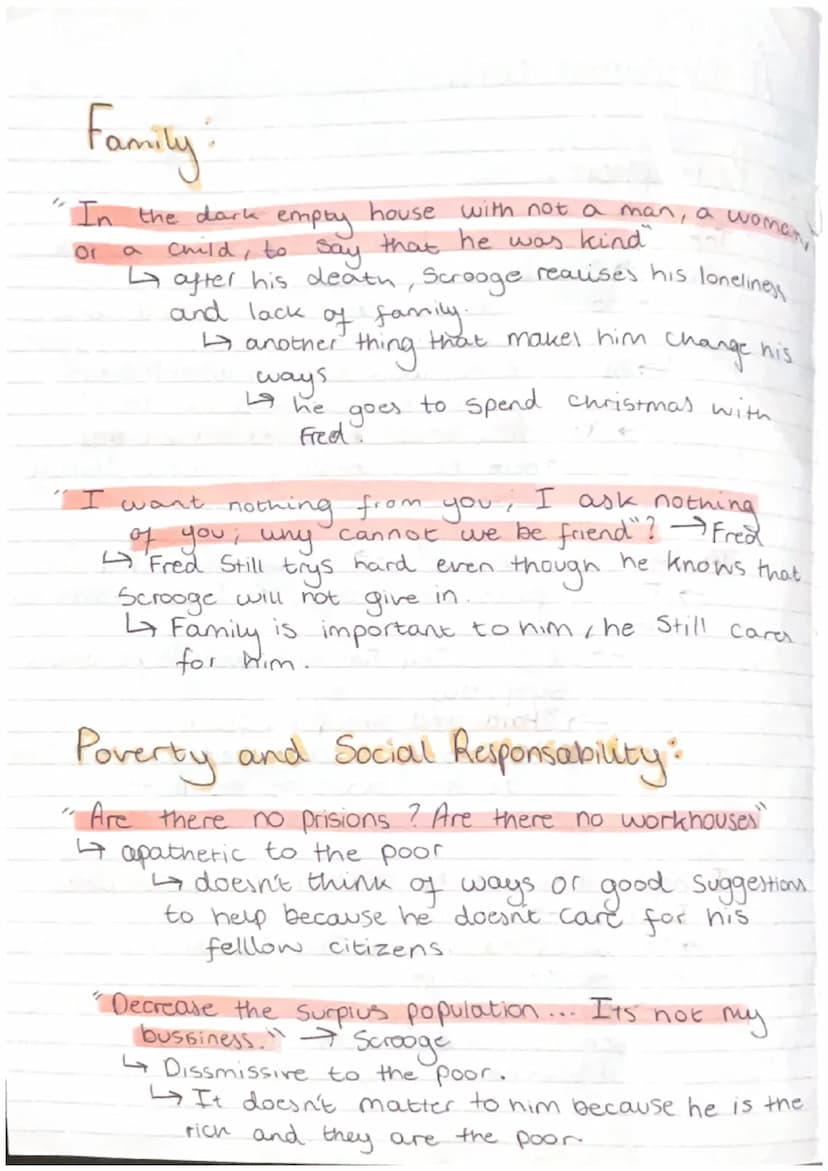 Family:
"In the dark empty house with not a man, a woman,
or a child, to say that he was kind"
↳ after his death, Scrooge realises his loneliness
and lack of family.
↳ another thing that makes him change his
ways
↳ he goes to spend christmas with
Fred.
"I want nothing from you; I ask nothing
of you; why cannot we be friend"? → Fred
↳ Fred Still trys hard even though he knows that
Scrooge will not give in.
↳ Family is important to him, he Still cares
for him.
Poverty and Social Responsability:
"Are there no prisions? Are there no workhouses"
↳ apathetic to the poor
↳ doesn't think of ways or good suggestions
to help because he doesnt care for his
felllow citizens.
"Decrease the surplus population... Its not my
bussiness." → Scrooge
↳ Dissmissive to the poor.
↳ It doesn't matter to him because he is the
rich and they are the poor.